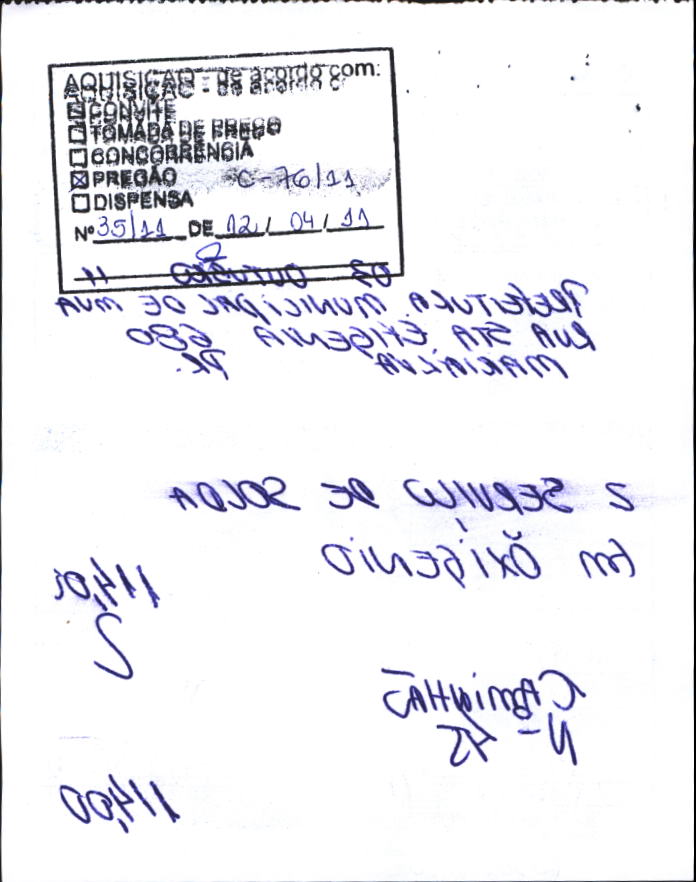 AQUISIÇÃO - de acordo com:
☐ CONVITE
☐ TOMADA DE PREÇO
☐ CONCORRÊNCIA
☒ PREGÃO C-76/11
☐ DISPENSA
Nº 35/11 DE 12 / 04 / 11
03 OUTUBRO 11
PREFEITURA MUNICIPAL DE MVA
RUA STA EFIGENIA 680
MARIALVA PR.
2 SERVIÇO DE SOLDA
EM OXIGENIO
114,00
CAMINHÃO
N- 45
114,00